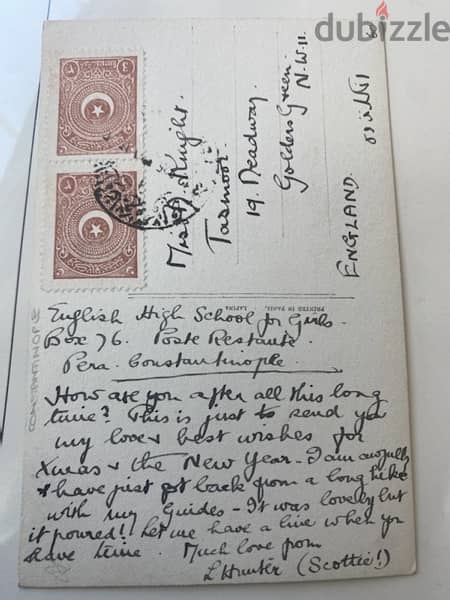 dubizzle
Miss Knight.
Tasmoor.
19. Meadway.
Golders Green.
N.W.11.
ENGLAND.
انكلتره
PRINTED IN PARIS. LAPINA
CONSTANTINOPLE
English High School for Girls.
Box 76. Poste Restante.
Pera. Constantinople.
How are you after all this long
time? This is just to send you
my love & best wishes for
Xmas & the New Year - I am awfully
& have just got back from a long hike
with my Guides - It was lovely but
it poured! Let me have a line when you
have time. Much love from
L Hunter (Scottie!)